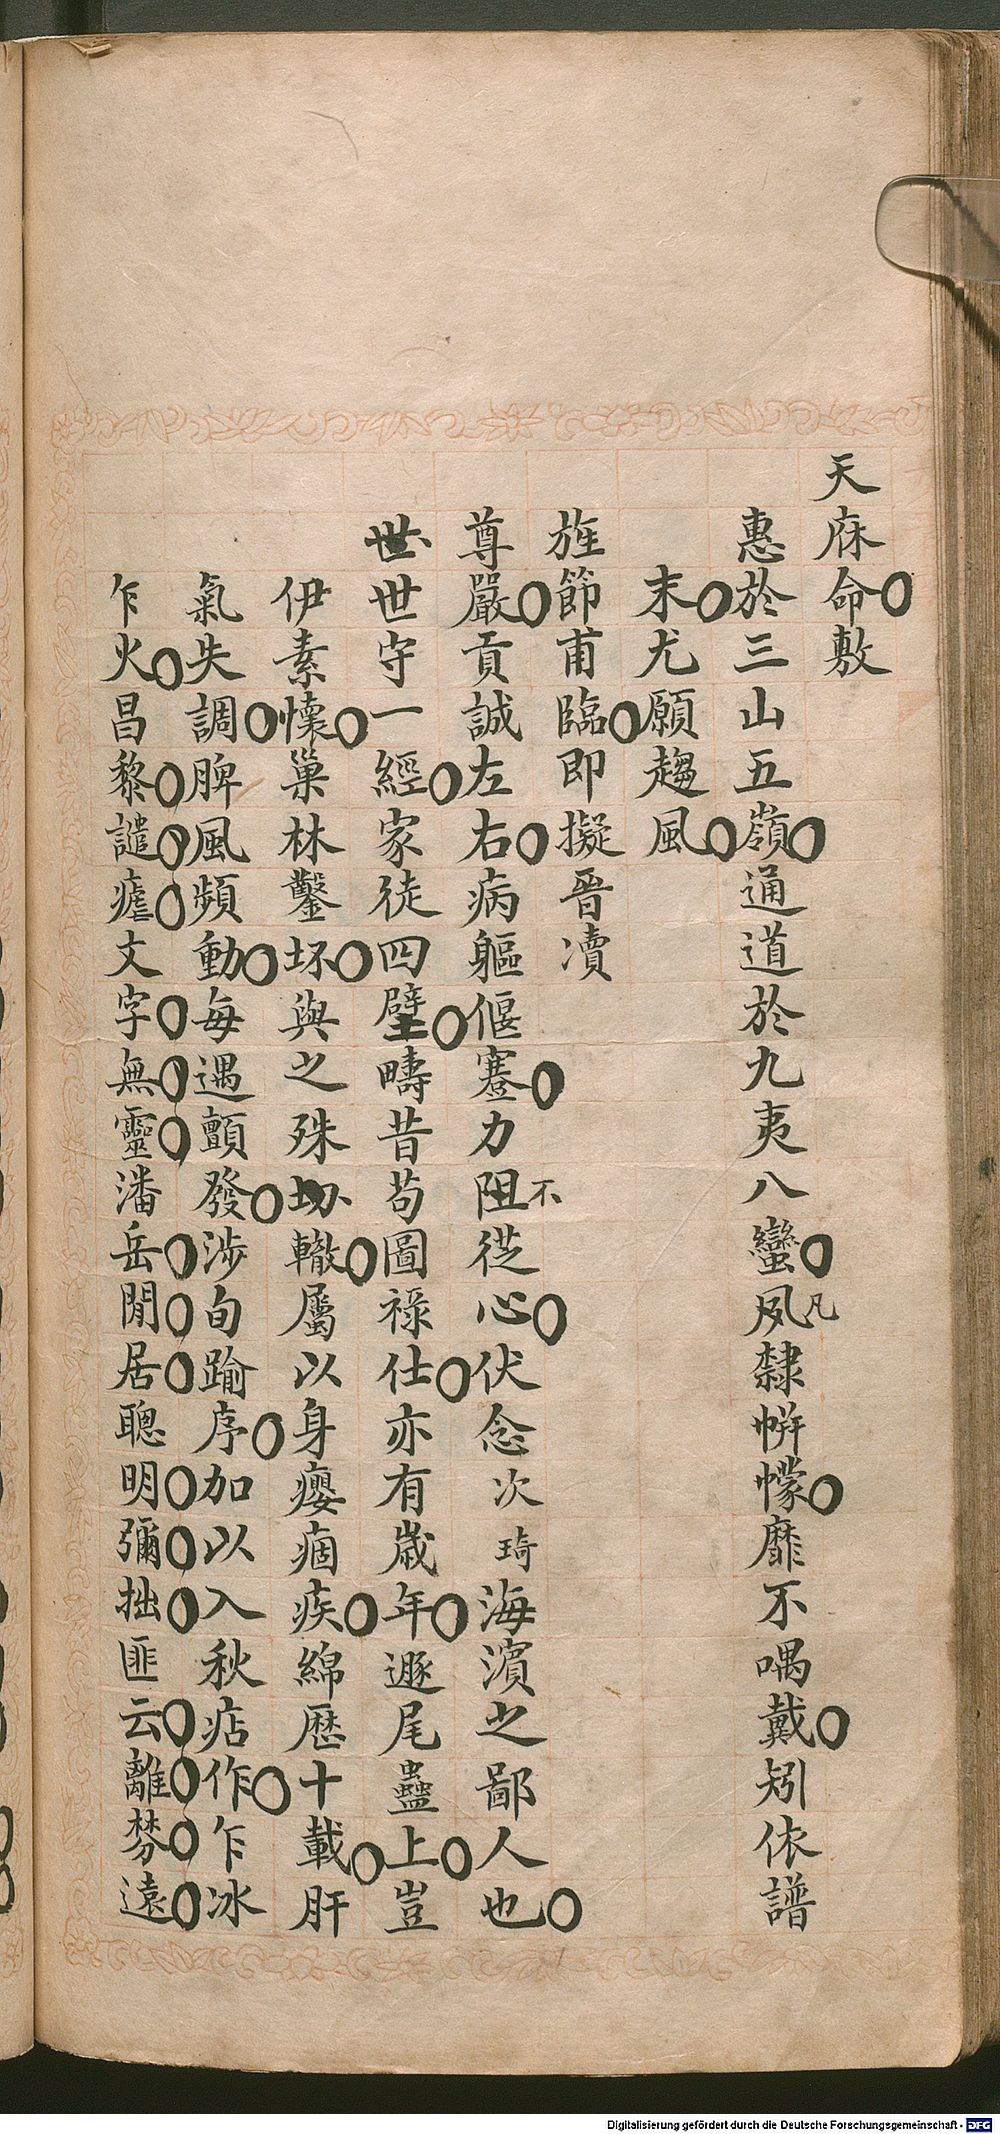 天庥命敷
惠於三山五嶺通道於九夷八蠻夙凡隸帡幪靡不喁戴矧依譜
末尤願趨風
旌節甫臨即擬晉瀆
尊嚴貢誠左右病軀偃蹇力阻不從心伏念次琦海濱之鄙人也
世世守一經家徒四壁疇昔茍圖祿仕亦有歲年遯尾蠱上豈
伊素懷巢林鑿坏與之殊轍屬以身癭痼疾綿歷十載肝
氣失調脾風頻動每遇顫發涉旬踰序加以入秋痁作乍冰
乍火昌黎譴瘧文字無靈潘岳閒居聰明彌拙匪云離棼遠
Digitalisierung gefördert durch die Deutsche Forschungsgemeinschaft - DFG